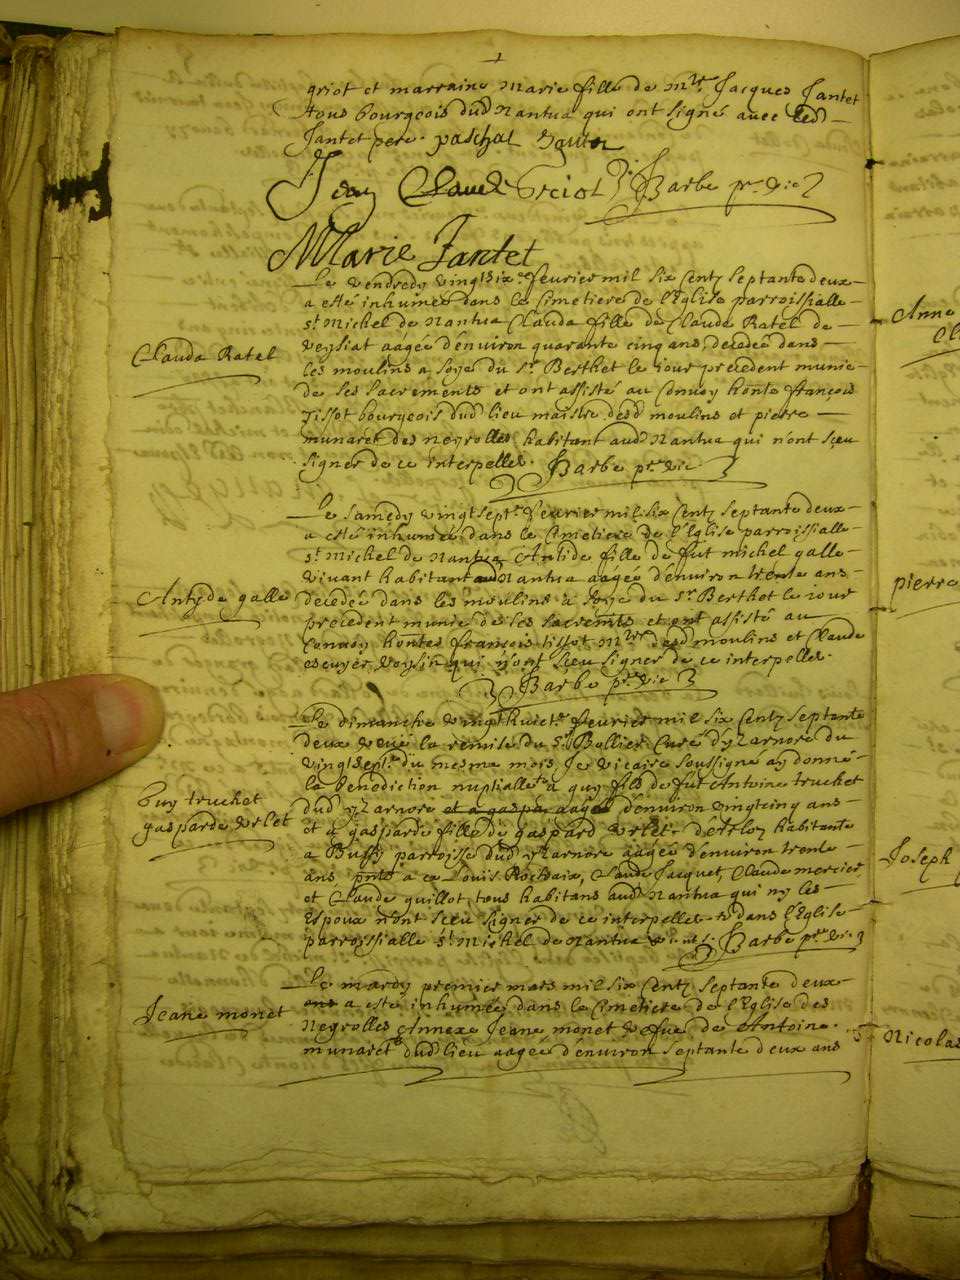 griot et marraine Marie fille de Mre Jacques Jantet
tous bourgeois dud Nantua qui ont signé avec led
Jantet pere. paschal
Jean Claude Greiot Barbe pre vic
Marie Jantet
Clauda Ratel
Le vendredy vingtsixe fevrier mil six centz septante deux
a esté inhumée dans le Cimetiere de l'Eglise parroissialle
st Michel de Nantua Clauda fille de Claude Ratel de
veysiat aagée d'environ quarante cinq ans, decedée dans
les moulins a soye du sr Berthet le jour precedent munie
de ses sacrements et ont assisté au Convoy honte francois
Tissot bourgeois dud lieu maistre desd moulins et pierre
munaret des neyrolles habitant aud Nantua qui n'ont sceu
signer de ce interpelles. Barbe pre vic
Antyde galle
Le samedy vingt septe fevrier mil six centz septante deux
a esté inhumée dans le Cimetiere de l'Eglise parroissialle
st Michel de Nantua Antide fille de fut michel galle
vivant habitant aud Nantua aagée d'environ trente ans
decedée dans les moulins a soye du sr Berthet le jour
precedent munie de ses sacremts et ont assisté au
Convoy hontes francois tissot Mre desd moulins et Claude
escuyer voysin qui n'ont sceu signer de ce interpelles.
Barbe pre vic
Guy truchet
gasparde vrlet
Le dimanche vingthuicte fevrier mil six centz septante
deux veüe la remise du sr Ballier Curé d'yzarnore du
vingtsepte du mesme mois Je vicaire soussigné ay donné
la benediction nuptialle a guy fils de fut Antoine truchet
dud yzarnore et a gaspa aagé d'environ vingtcinq ans
et a gasparde fille de gaspard vrlet habitante
a Bussy parroisse dud yzarnore aagée d'environ trente
ans pnts a ce Louis Rochaix, Claude Jacquet, Claude mercier
et Claude guillot tous habitans aud Nantua qui ny les
Espoux n'ont sceu signer de ce interpelles dans l'Eglise
parroissialle st Michel de Nantua Barbe pre vic
Jeane monet
Le mardy premier mars mil six centz septante deux
ans a esté inhumée dans le Cimetiere de l'Eglise des
Neyrolles Annexe Jeane monet vefve de Antoine
munaret dud lieu aagée d'environ septante deux ans
Anne
Cl
pierre
Joseph
Nicolas